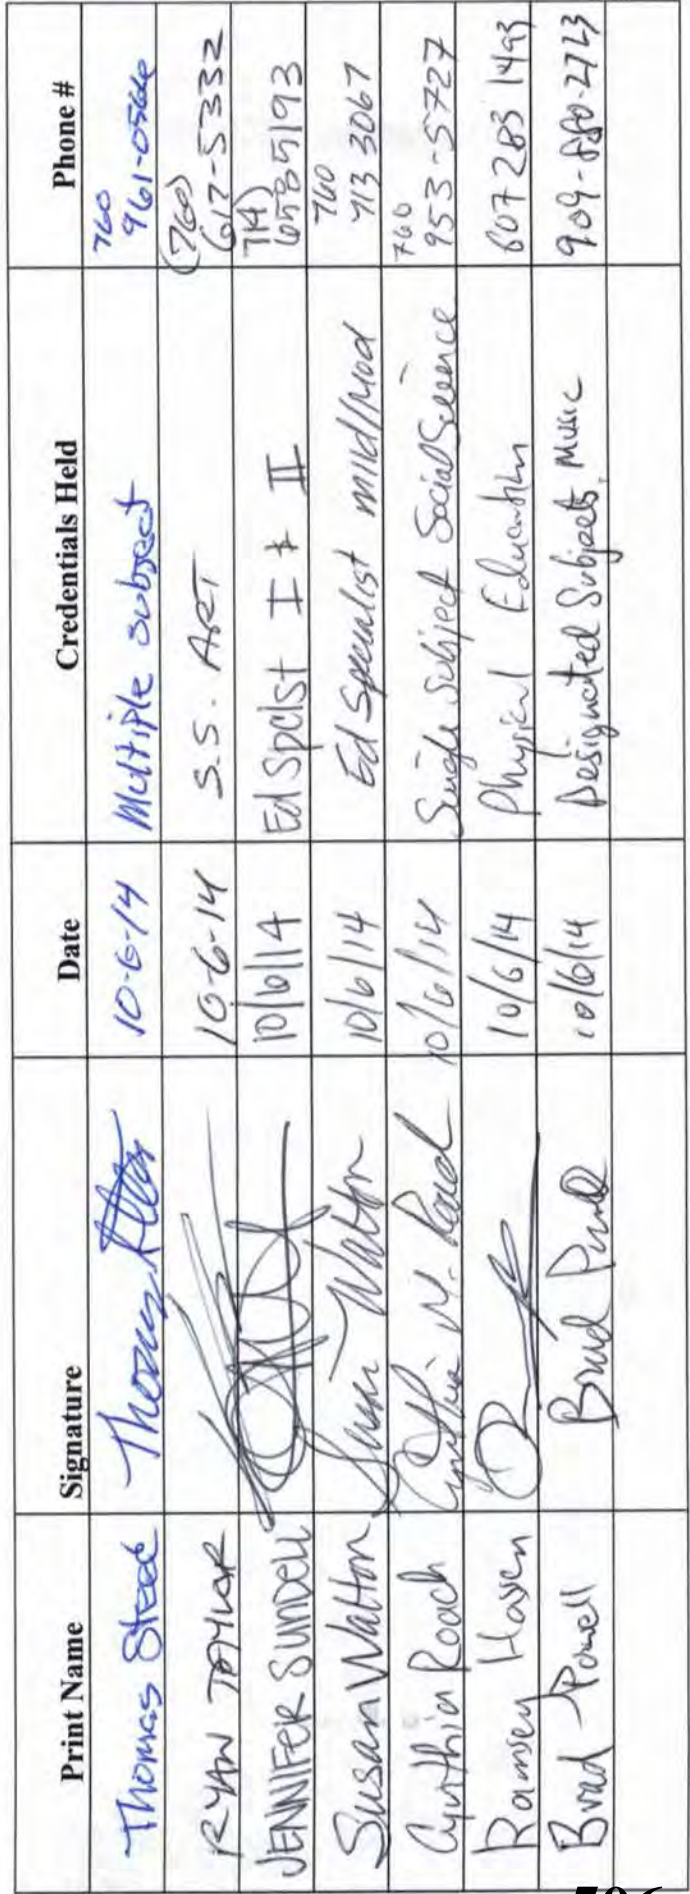 Print Name Signature Date Credentials Held Phone #
Thomas Steed Thomas 10-6-14 Multiple subject 760 961-0566
RYAN TAYLOR 10-6-14 S.S. ART (760) 617-5332
JENNIFER SUNDELL 10/6/14 Ed Spclst I & II 714)
Susan Watton Susan Watton 10/6/14 Ed Specialist mild/mod 760 713 3067
Cynthia Roach Cynthia M. Roach 10/6/14 Single Subject Social Science 760 953-5727
Ramsey 10/6/14 Physical Education 607 283 1493
Brad Powell Brad 10/6/14 Designated Subjects, Music 909-880-2723